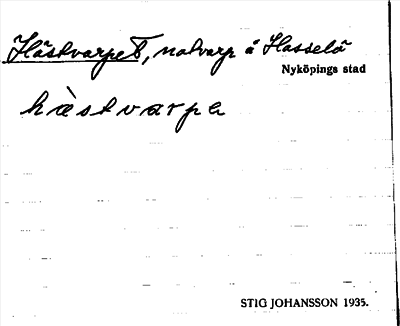 Hästvarpet, notvarp å Hasselö
Nyköpings stad
hàstvarpa
STIG JOHANSSON 1935.